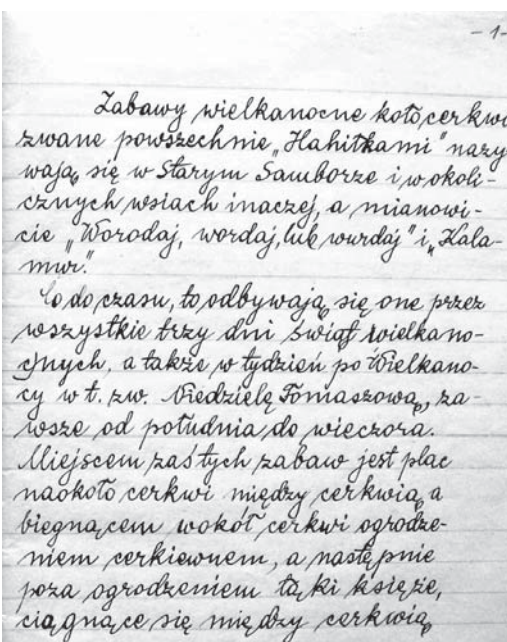 - 1 -
Zabawy wielkanocne koło cerkwi
zwane powszechnie „Hahiłkami" nazy
wają się w Starym Samborze i w okoli-
cznych wsiach inaczej, a mianowi-
cie „Worodaj, wordaj, lub wurdaj" i „Kala-
mur."
Co do czasu, to odbywają się one przez
wszystkie trzy dni świąt wielkano-
cnych, a także w tydzień po Wielkano-
cy w t. zw. Niedzielę Tomaszową, za-
wsze od południa do wieczora.
Miejscem zaś tych zabaw jest plac
naokoło cerkwi między cerkwią, a
biegnącem wokół cerkwi ogrodze-
niem cerkiewnem, a następnie
poza ogrodzeniem łąki księże,
ciągnące się między cerkwią